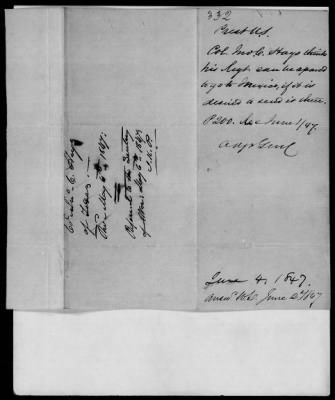 332
Prest U.S.
Col. Jno. C. Hays thinks
his Regt. can be spared
to go to Mexico, if it is
desired to send it there.
P 200. Rec June 1/47.
Adjt Genl
June 4, 1847.
June 2d/47
C. Hays
of Texas.
Recd May 6th, 1847.
Referred to the Secretary
of War May 6th 1847
J.K.P.